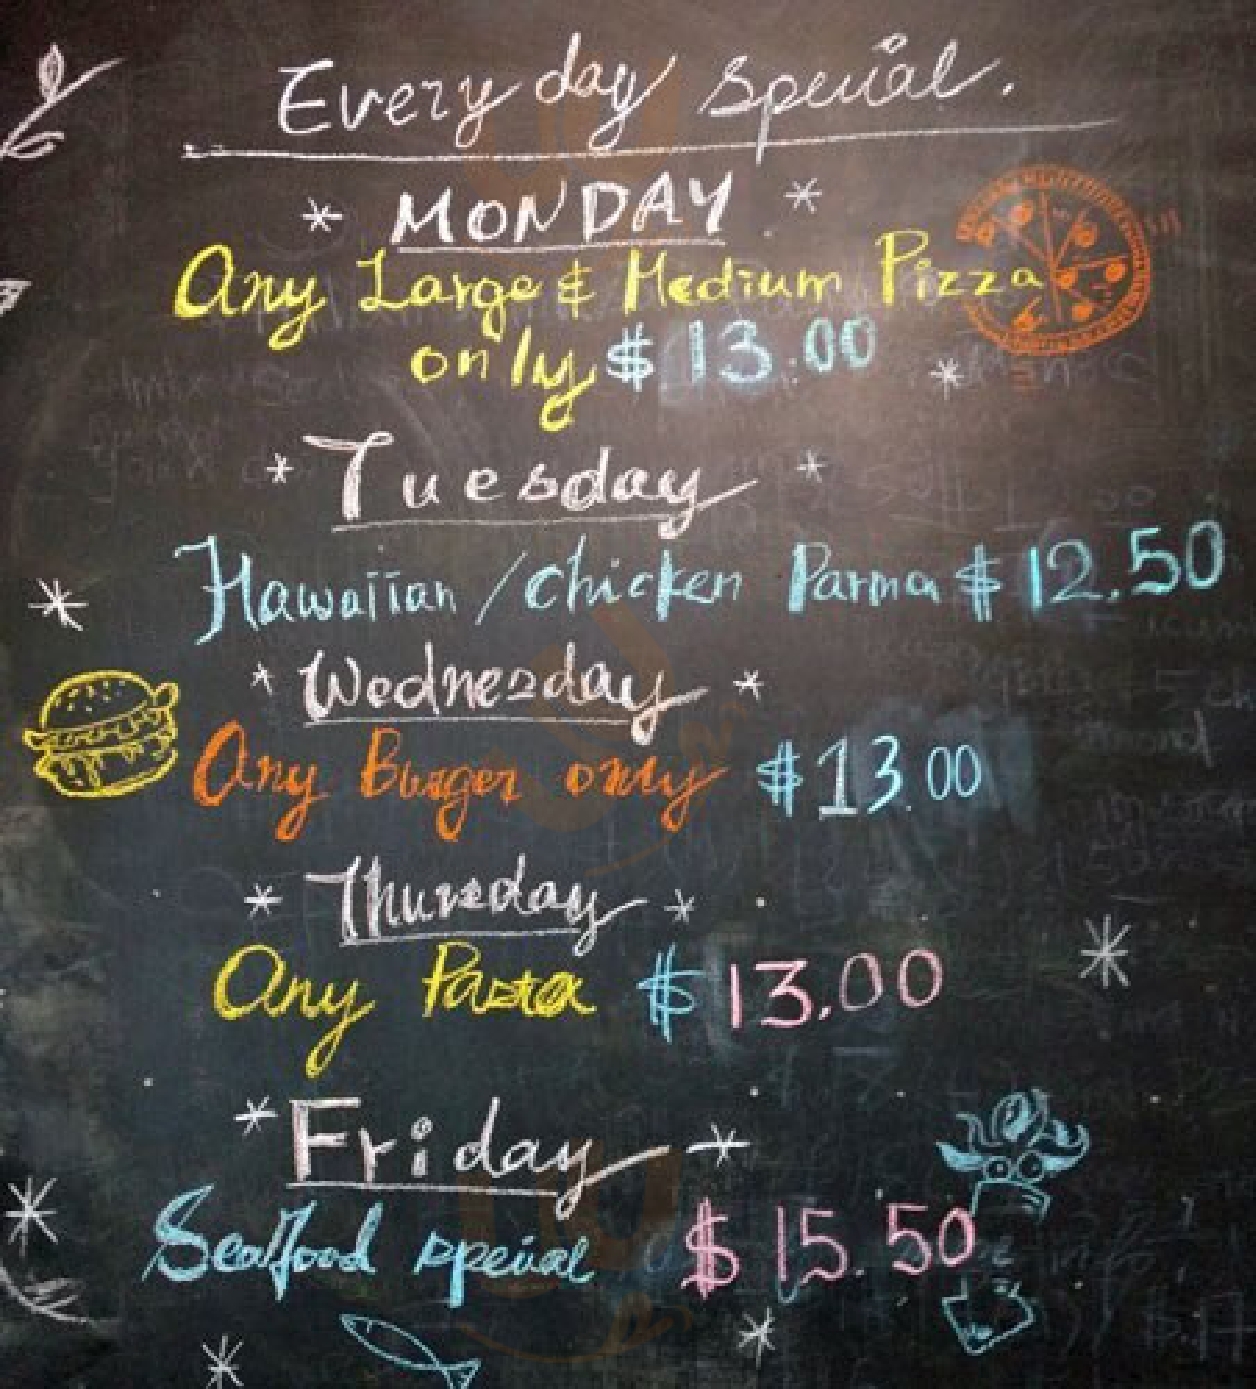 Every day special.
* MONDAY *
Any Large & Medium Pizza
only $13.00
* Tuesday *
Hawaiian / Chicken Parma $12.50
* Wednesday *
Any Burger only $13.00
* Thursday *
Any Pasta $13.00
* Friday *
Seafood special $15.50